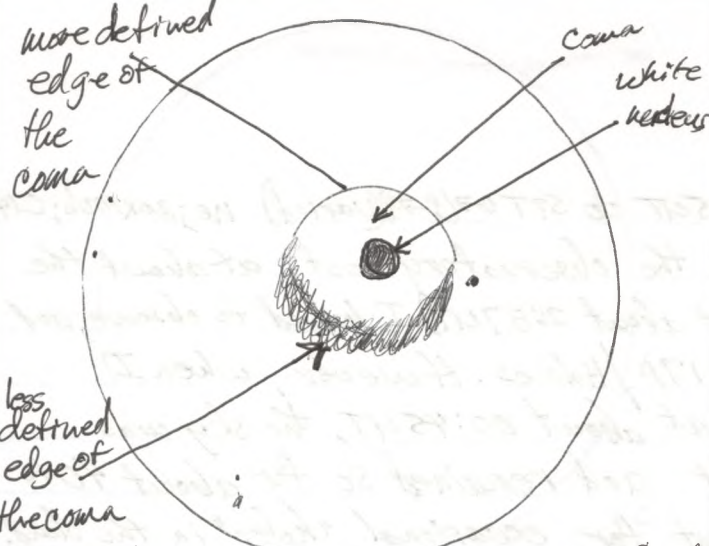 more defined
edge of
the
coma
coma
white
nucleus
less
defined
edge of
the coma
a